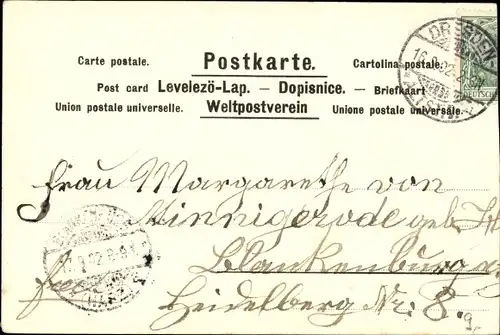 Carte postale. Postkarte. Cartolina postale.
Post card Levelezö-Lap. — Dopisnice. — Briefkaart
Union postale universelle. Weltpostverein Unione postale universale.
DRESDEN-
ALTST.
DEUTSCH
Frau Margarethe von
Minnigerode geb.
Blankenburg
Heidelberg Nr. 8.